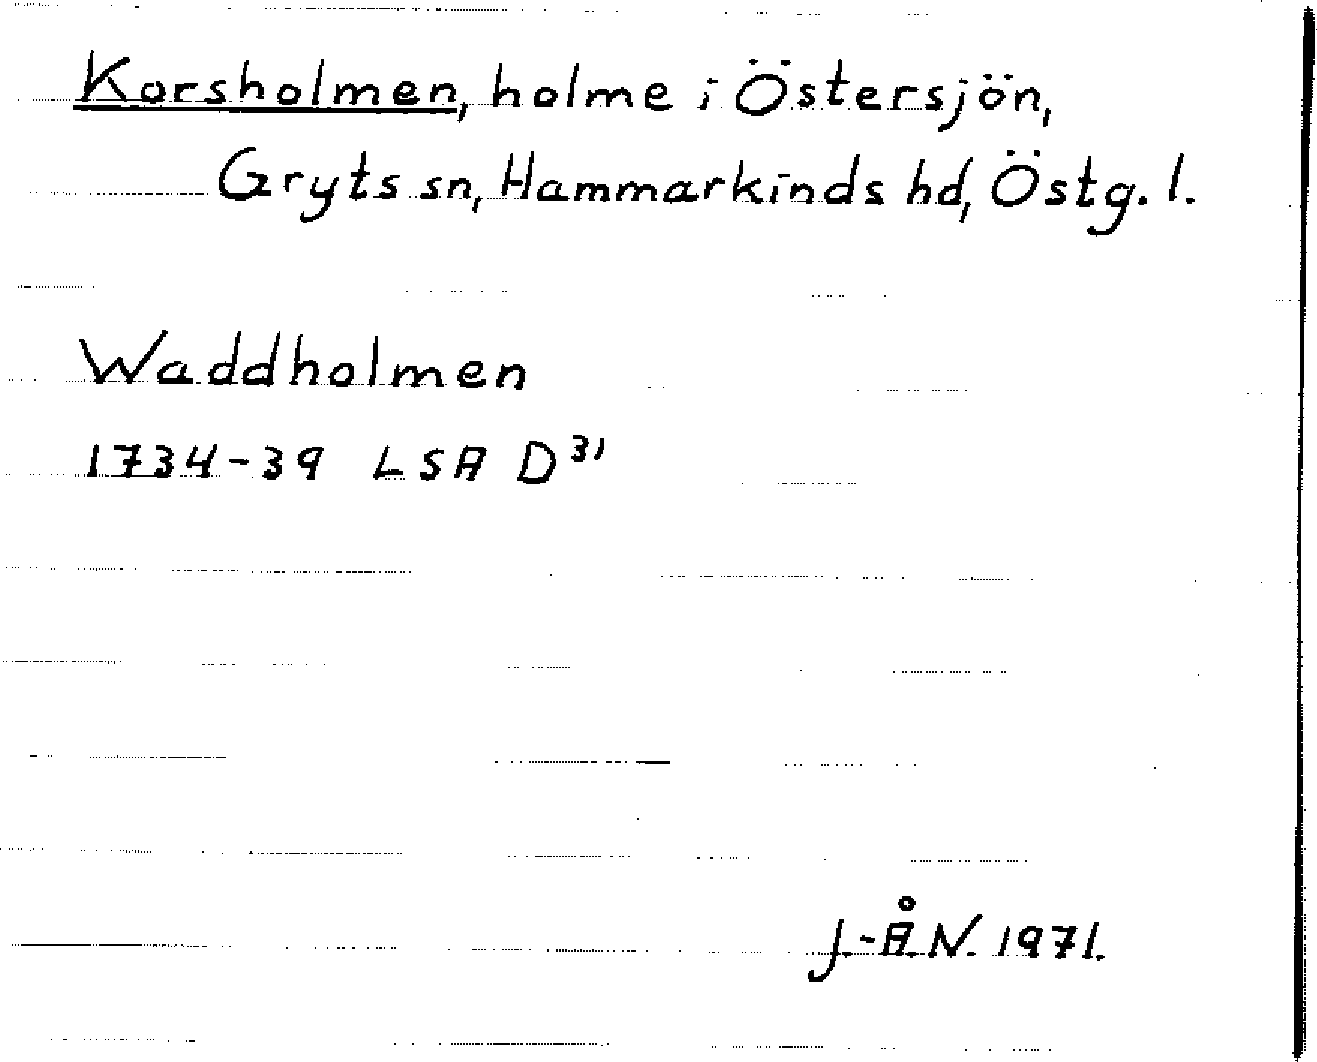 Korsholmen, holme i Östersjön,
Gryts sn, Hammarkinds hd, Östg. l.
Waddholmen
1734-39 LSA D³¹
J.-Å.N. 1971.